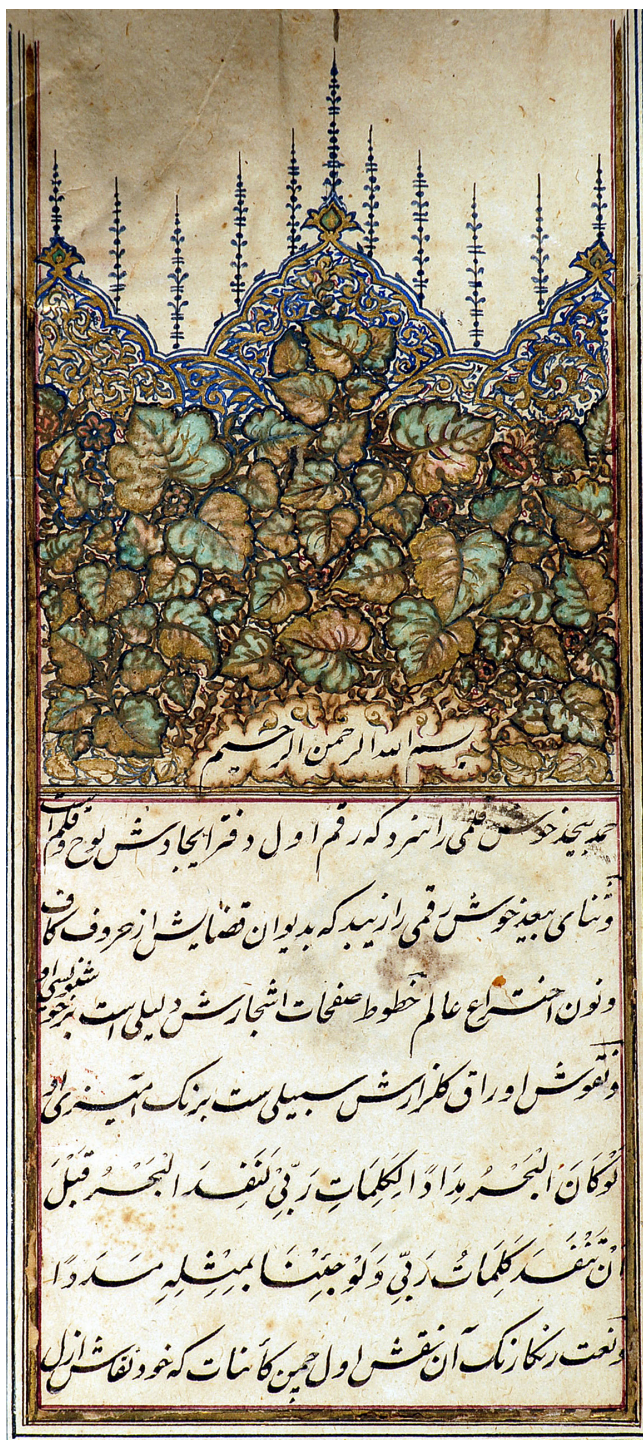 بسم الله الرحمن الرحیم
حمد بیحد خوش قلمی را سزد که رقم اول دفتر ایجادش لوح و قلم است
و ثنای بیعد خوش رقمی را زیبد که بدیوان قضایش از حروف کاف
و نون اختراع عالم خطوط صفحات اشجارش دلیلی است بر خوشنویسی او
و نقوش اوراق کلزارش سبیلی ست برنک آمیزی او
لَوْ کَانَ الْبَحْرُ مِدَادًا لِکَلِمَاتِ رَبّیِ لَنَفِدَ الْبَحْرُ قَبْلَ
اَنْ تَنْفَدَ کَلِمَاتُ رَبّیِ وَلَوْ جِئْنَا بِمِثْلِهِ مَدَدًا
و نعت رنکارنک آن نقش اول چمن کائنات که خود نقاش ازل